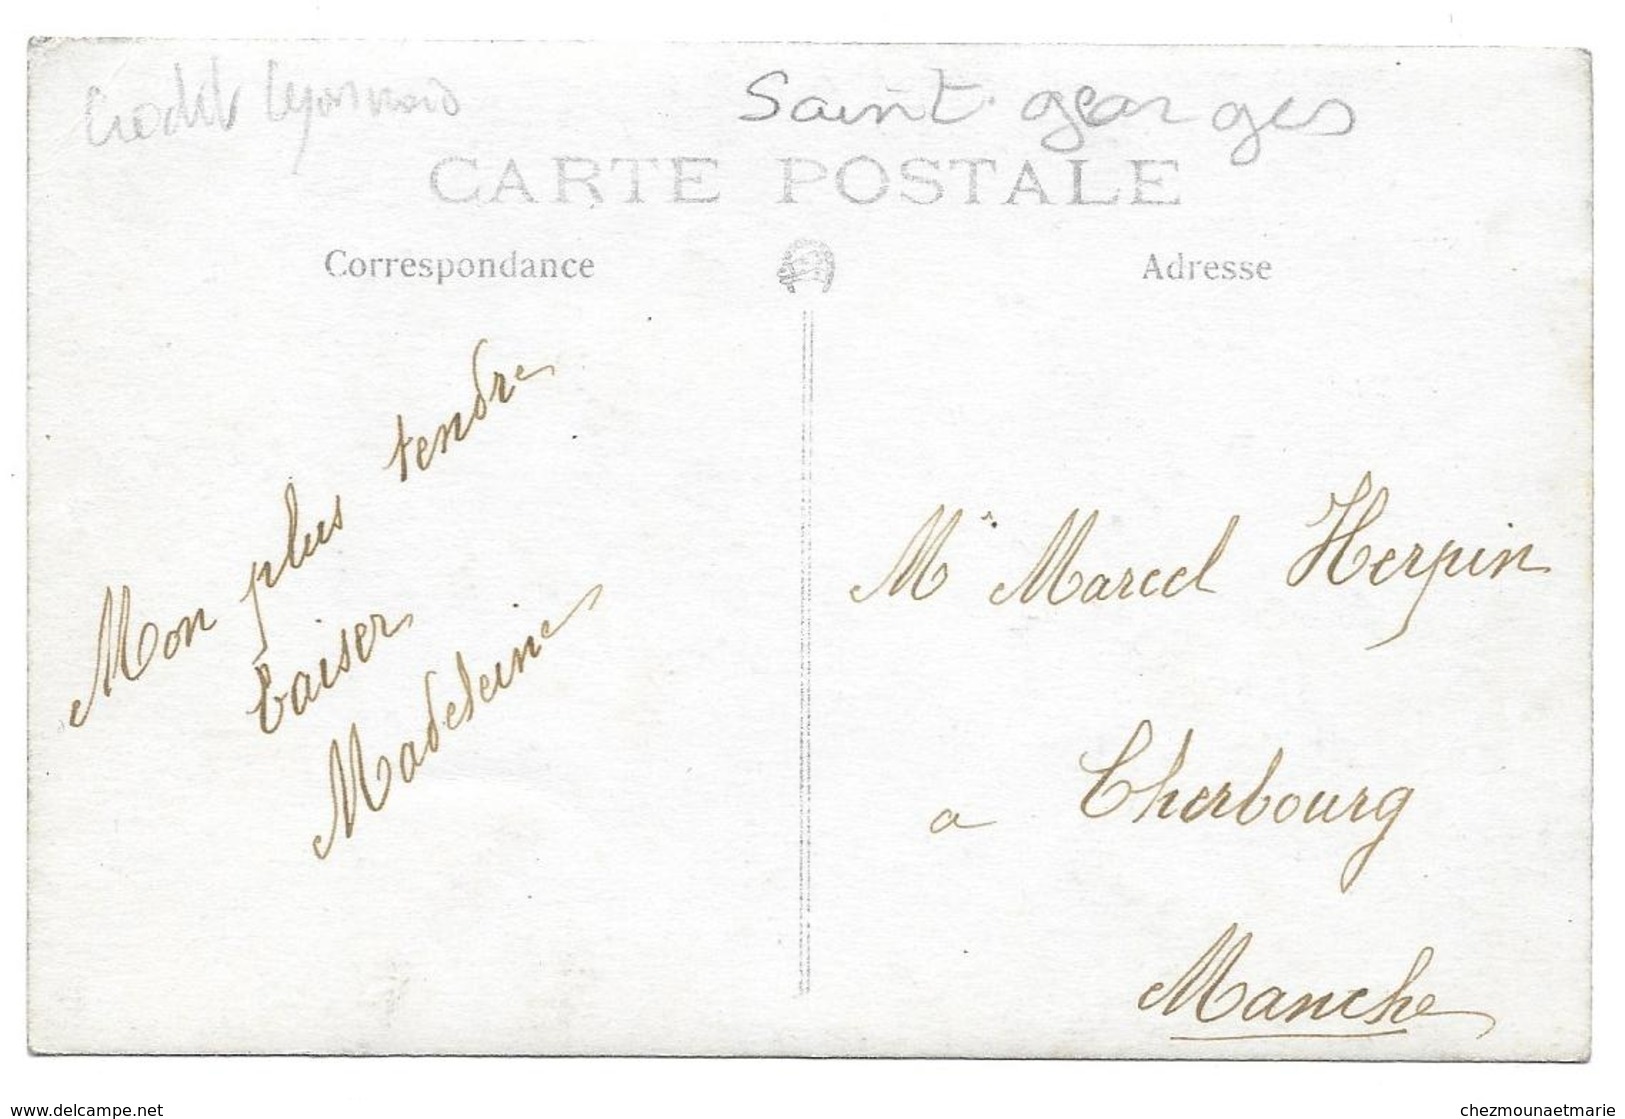 Crédit Lyonnais
Saint georges
CARTE POSTALE
Correspondance
Adresse
Mon plus tendre
baiser
Madeleine
Mr Marcel Herpin
a Cherbourg
Manche
www.delcampe.net
chezmounaetmarie